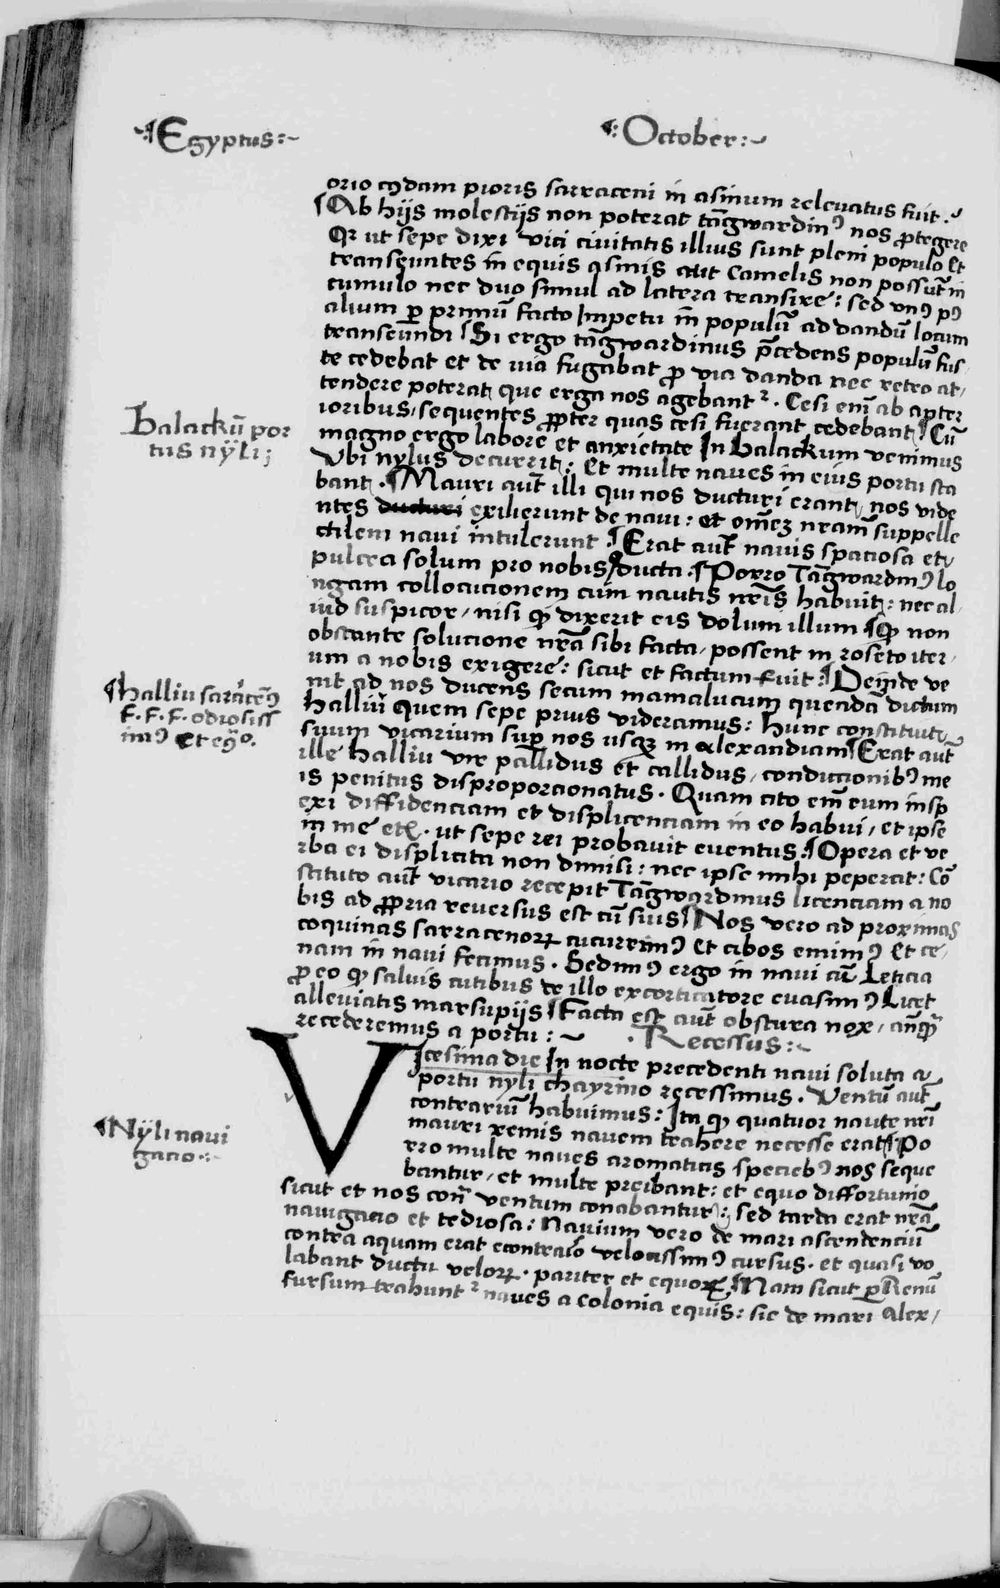 Egyptus:~
October:~
orio cuiusdam pioris sarraceni in asinum relevatus fuit.
¶Ab hijs molestijs non poterat ta͞gwardin⁹ nos ꝓtegere
Qr ut sepe dixi vici civitatis illius sunt pleni populo et
transeuntes in equis asinis aut Camelis non possūt in
cumulo nec duo simul ad latera transire: sed vn⁹ p⁹
alium per primū facto Impetu in populū ad dandū locum
transeūndi ¶Si ergo ta͞gwardinus p̄cedens populū fus
te cedebat et de via fugabat ꝓ via danda nec retro at/
tendere poterat que erga nos agebant². Cesi eni͞ ab anter
ioribus, sequentes ꝓpter quas cesi fuerant cedebant ¶Cū
magno ergo labore et anxietate In balackum venimus
Balackū por
tus nÿli;
Vbi nylus decurrit: Et multe naves in eius portu sta
bant. ¶Mauri aūt illi qui nos ducturi erant, nos vide
ntes ducturi exilierunt de navi: et om̄eꝫ nr̄am suppelle
ctilem navi intulerunt ¶Erat aūt navis spaciosa et
pulcra solum pro nobis ducta. ¶Porro Ta͞gwardin⁹ lo
ngam collocucionem cum nautis nr̄is habuit: nec al
iud suspicor, nisi qꝫ dixerit eis dolum illum ¶Qꝫ non
obstante solucione nr̄a sibi facta, possent in roseto iter/
um a nobis exigere: sicut et factum fuit: ¶Deinde ve
nit ad nos ducens secum mamalucum quenda͞ dictum
¶halliu sarace͞⁹
F. F. F. odiosiss
im⁹ Et ego.
halliū quem sepe prius videramus: hunc constituit
suum vicarium sup nos usqꝫ in alexandriam ¶Erat aūt
ille halliu vir pallidus et callidus, condicionib⁹ me
is penitus disproporcionatus. Quam cito em̄ eum insp
exi diffidenciam et displicenciam in eo habui, et ipse
in me etc. ut sepe rei probavit eventus: ¶Opera et ve
rba ei displicita non dimisi: nec ipse mihi pepercit: Cō
stituto aūt vicario recepit Ta͞gwardinus licenciam a no
bis ad ꝓpria reversus est cū suis ¶Nos vero ad proximas
coquinas sarracenorꝫ cucurrim⁹ et cibos emim⁹ et ce/
nam in navi fecimus. Sedim⁹ ergo in navi cū Leticia
ꝓ eo qꝫ salvis cutibus de illo excorticatore evasim⁹ Licet
alleviatis marsupijs ¶Facta est aūt obscura nox, anꝗꝫ
recederemus a portu:~
Recessus:~
VIcesima die In nocte precedenti navi soluta a
portu nyli chayrino recessimus. Ventū aūt
contrariū habuimus: Ita qꝫ quatuor naute nr̄i
mauri remis navem trahere necesse erat ¶Po
¶Nÿli navi
gacio:~
rro multe naves aromaticis specieb⁹ nos seque
bantur, et multe preibant: et equo diffortunio
sicut et nos con͞ ventum conabantur: sed tarda erat nr̄a
navigacio et tediosa: Navium vero de mari ascendenciū
contra aquam erat econtrario velocissim⁹ cursus. et quasi vo
labant ductu velorꝫ. pariter et equorꝫ. Nam sicut p Renū
sursum trahunt² naves a Colonia equis: sic de mari Alex/